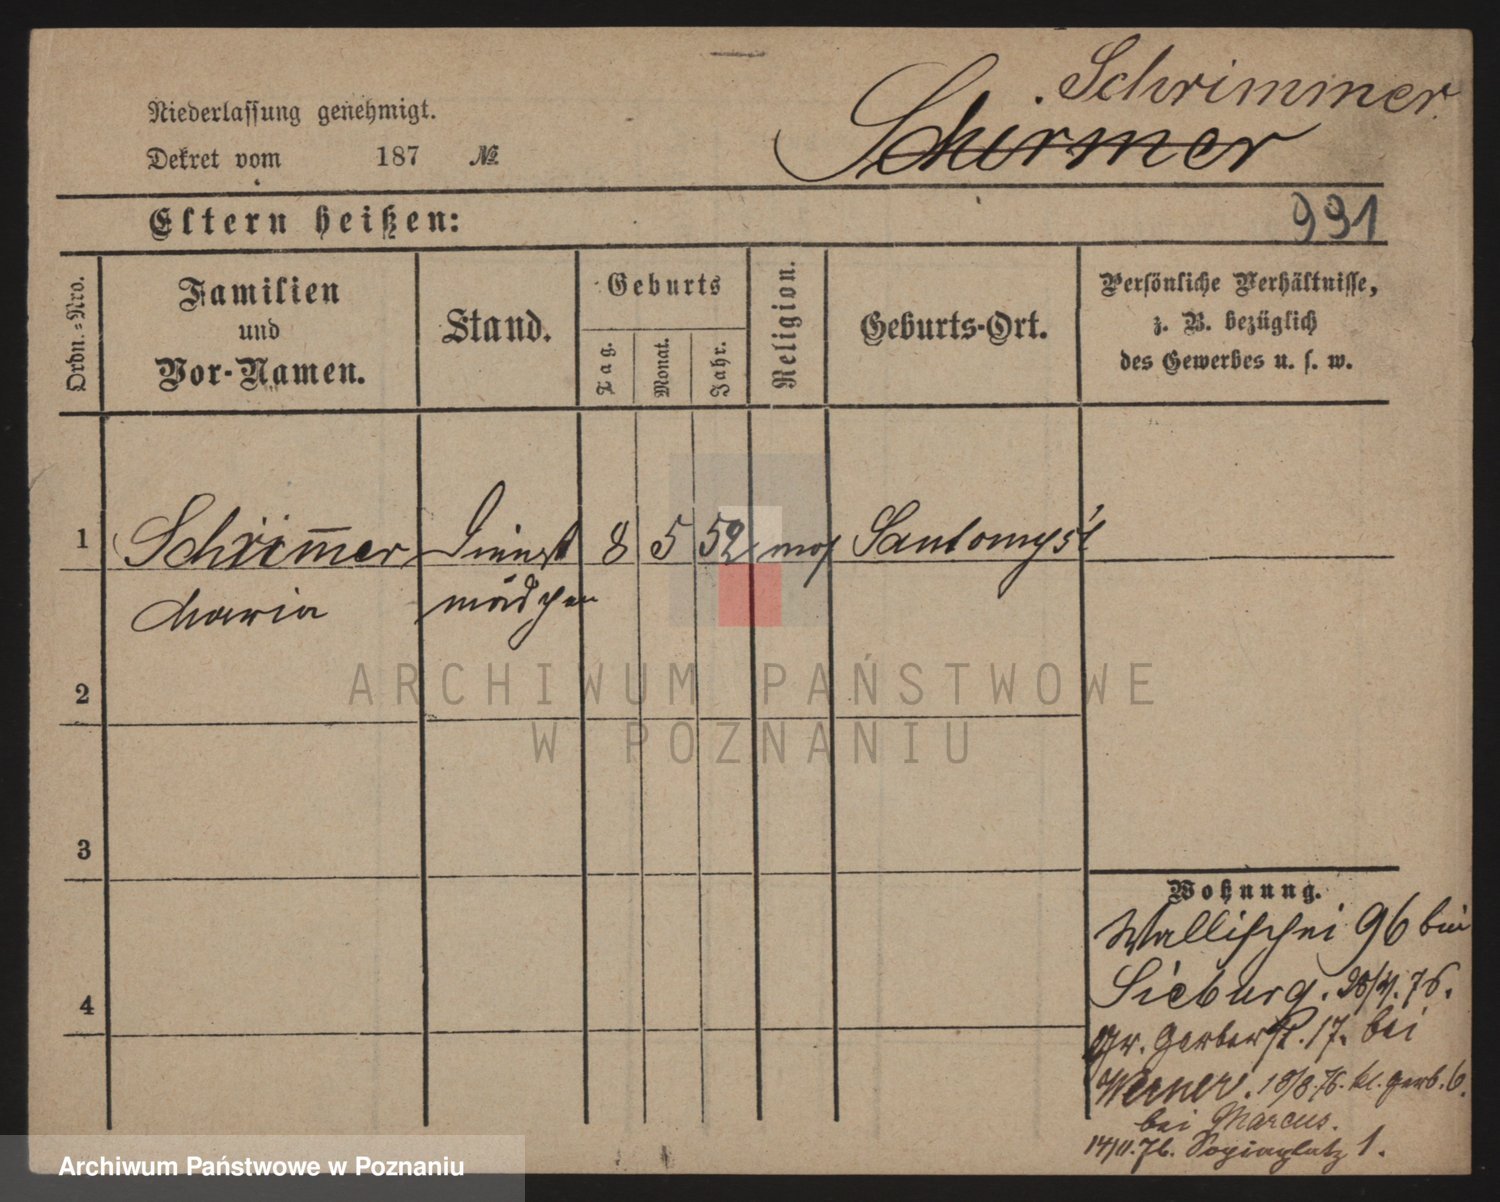 Schrimmer
Niederlassung genehmigt.
Schirmer
Dekret vom 187 №
Eltern heißen:
991
Ordn.=Nro.
Familien
und
Vor-Namen.
Stand.
Geburts
Tag.
Monat.
Jahr.
Religion.
Geburts-Ort.
Persönliche Verhältnisse,
z. B. bezüglich
des Gewerbes u. s. w.
1 Schrim̅er Dienst 8 5 52 mos Santomyśl
Maria mädchen
2
3
4
ARCHIWUM PAŃSTWOWE
W POZNANIU
Wohnung.
Wallischei 96 bei
Sieburg. 76.
Gr. Gerberst. 17. bei
Werner. 18/8.76. kl. Gerb. 6.
bei Marcus.
14/11.76. 1.
Archiwum Państwowe w Poznaniu